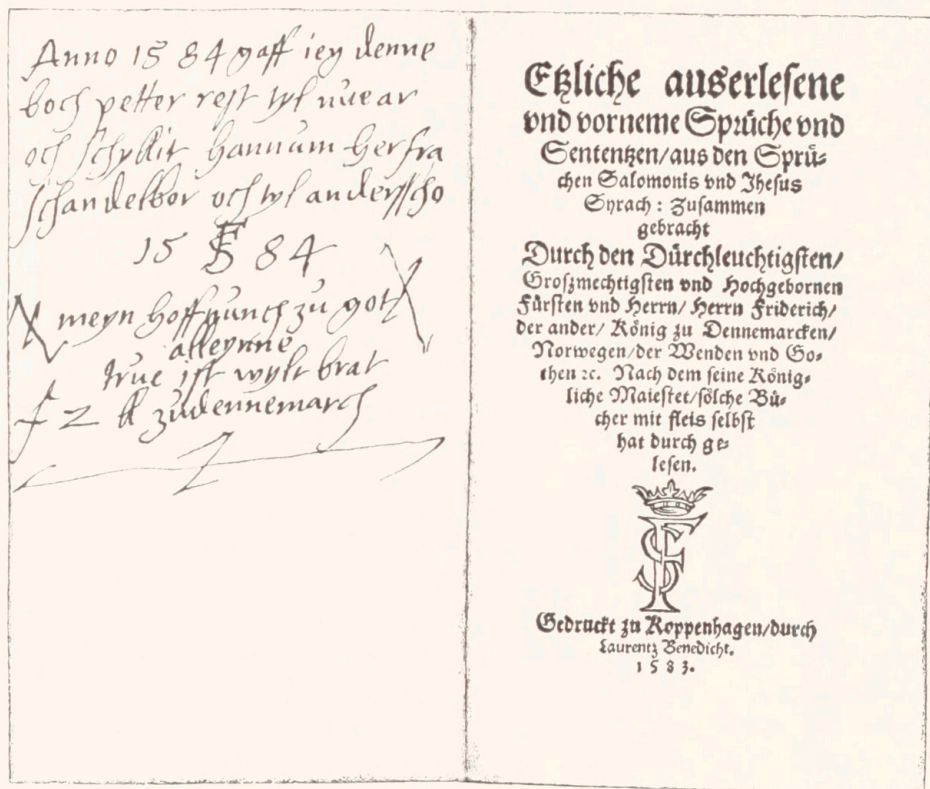 Anno 1584 gaff iey denne
boch petter rest tyl nuear
och schykit hannum her fra
schandelbor och tyl andersscho
15 FS 84
meyn hoffnunch zu got
alleynne
true ist wylt brat
F 2 k zu dennemarch
Etzliche auserlesene
vnd vorneme Sprüche vnd
Sententzen/aus den Sprü-
chen Salomonis vnd Jhesus
Syrach: Zusammen
gebracht
Durch den Dürchleuchtigsten/
Groszmechtigsten vnd Hochgebornen
Fürsten vnd Herrn/ Herrn Friderich/
der ander/ König zu Dennemarcken/
Norwegen/der Wenden vnd Go-
then ꝛc. Nach dem seine König-
liche Maiestet/sölche Bü-
cher mit fleis selbst
hat durch ge-
lesen.
FS
Gedruckt zu Koppenhagen/durch
Laurentz Benedicht.
1583.